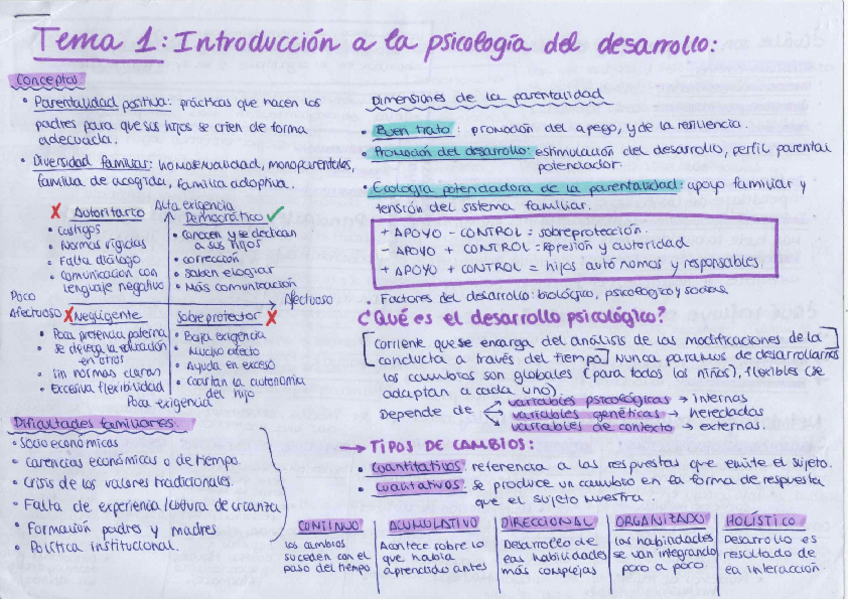 Tema 1: Introducción a la psicología del desarrollo:
Conceptos
• Parentalidad positiva: prácticas que hacen los
padres para que sus hijos se crien de forma
adecuada.
• Diversidad familiar: homosexualidad, monoparentales,
familia de acogida, familia adoptiva.
Alta exigencia
✗ Autoritario
• Castigos
• Normas rígidas
• Falta diálogo
• Comunicación con
lenguaje negativo
Democrático ✓
• Conocen y se dedican
a sus hijos
• corrección
• saben elogiar
• Más comunicación
Poco
Afectuoso
Afectuoso
✗ Negligente
• Poca presencia paterna
• se delega la educación
en otros
• sin normas claras
• Excesiva flexibilidad
Sobreprotector ✗
• Baja exigencia
• Mucho afecto
• Ayuda en exceso
• Coartan la autonomía
del hijo
Poca exigencia
Dificultades familiares:
• Socioeconómicas
• Carencias económicas o de tiempo.
• Crisis de los valores tradicionales.
• Falta de experiencia/cultura de crianza
• Formación padres y madres
• Política institucional.
Dimensiones de la parentalidad
• Buen trato: promoción del apego, y de la resiliencia.
• Promoción del desarrollo: estimulación del desarrollo, perfil parental
potenciador.
• Ecología potenciadora de la parentalidad: apoyo familiar y
tensión del sistema familiar.
+ APOYO - CONTROL = sobreprotección.
- APOYO + CONTROL = represión y autoridad
+ APOYO + CONTROL = hijos autónomos y responsables.
• Factores del desarrollo: biológico, psicologico y social.
¿Qué es el desarrollo psicológico?
[Corriente que se encarga del análisis de las modificaciones de la
conducta a través del tiempo] Nunca paramos de desarrollarnos
los cambios son globales (para todos los niños), flexibles (se
adaptan a cada uno).
Depende de
variables psicológicas → internas
variables genéticas → heredadas
variables de contexto → externas.
→ TIPOS DE CAMBIOS:
• Cuantitativos: referencia a las respuestas que emite el sujeto.
• Cualitativos: se produce un cambio en la forma de respuesta
que el sujeto muestra.
CONTINUO
los cambios
suceden con el
paso del tiempo
ACUMULATIVO
Acontece sobre lo
que había
aprendido antes
DIRECCIONAL
Desarrollo de
las habilidades
más complejas
ORGANIZADO
las habilidades
se van integrando
poco a poco
HOLÍSTICO
Desarrollo es
resultado de
la interacción.